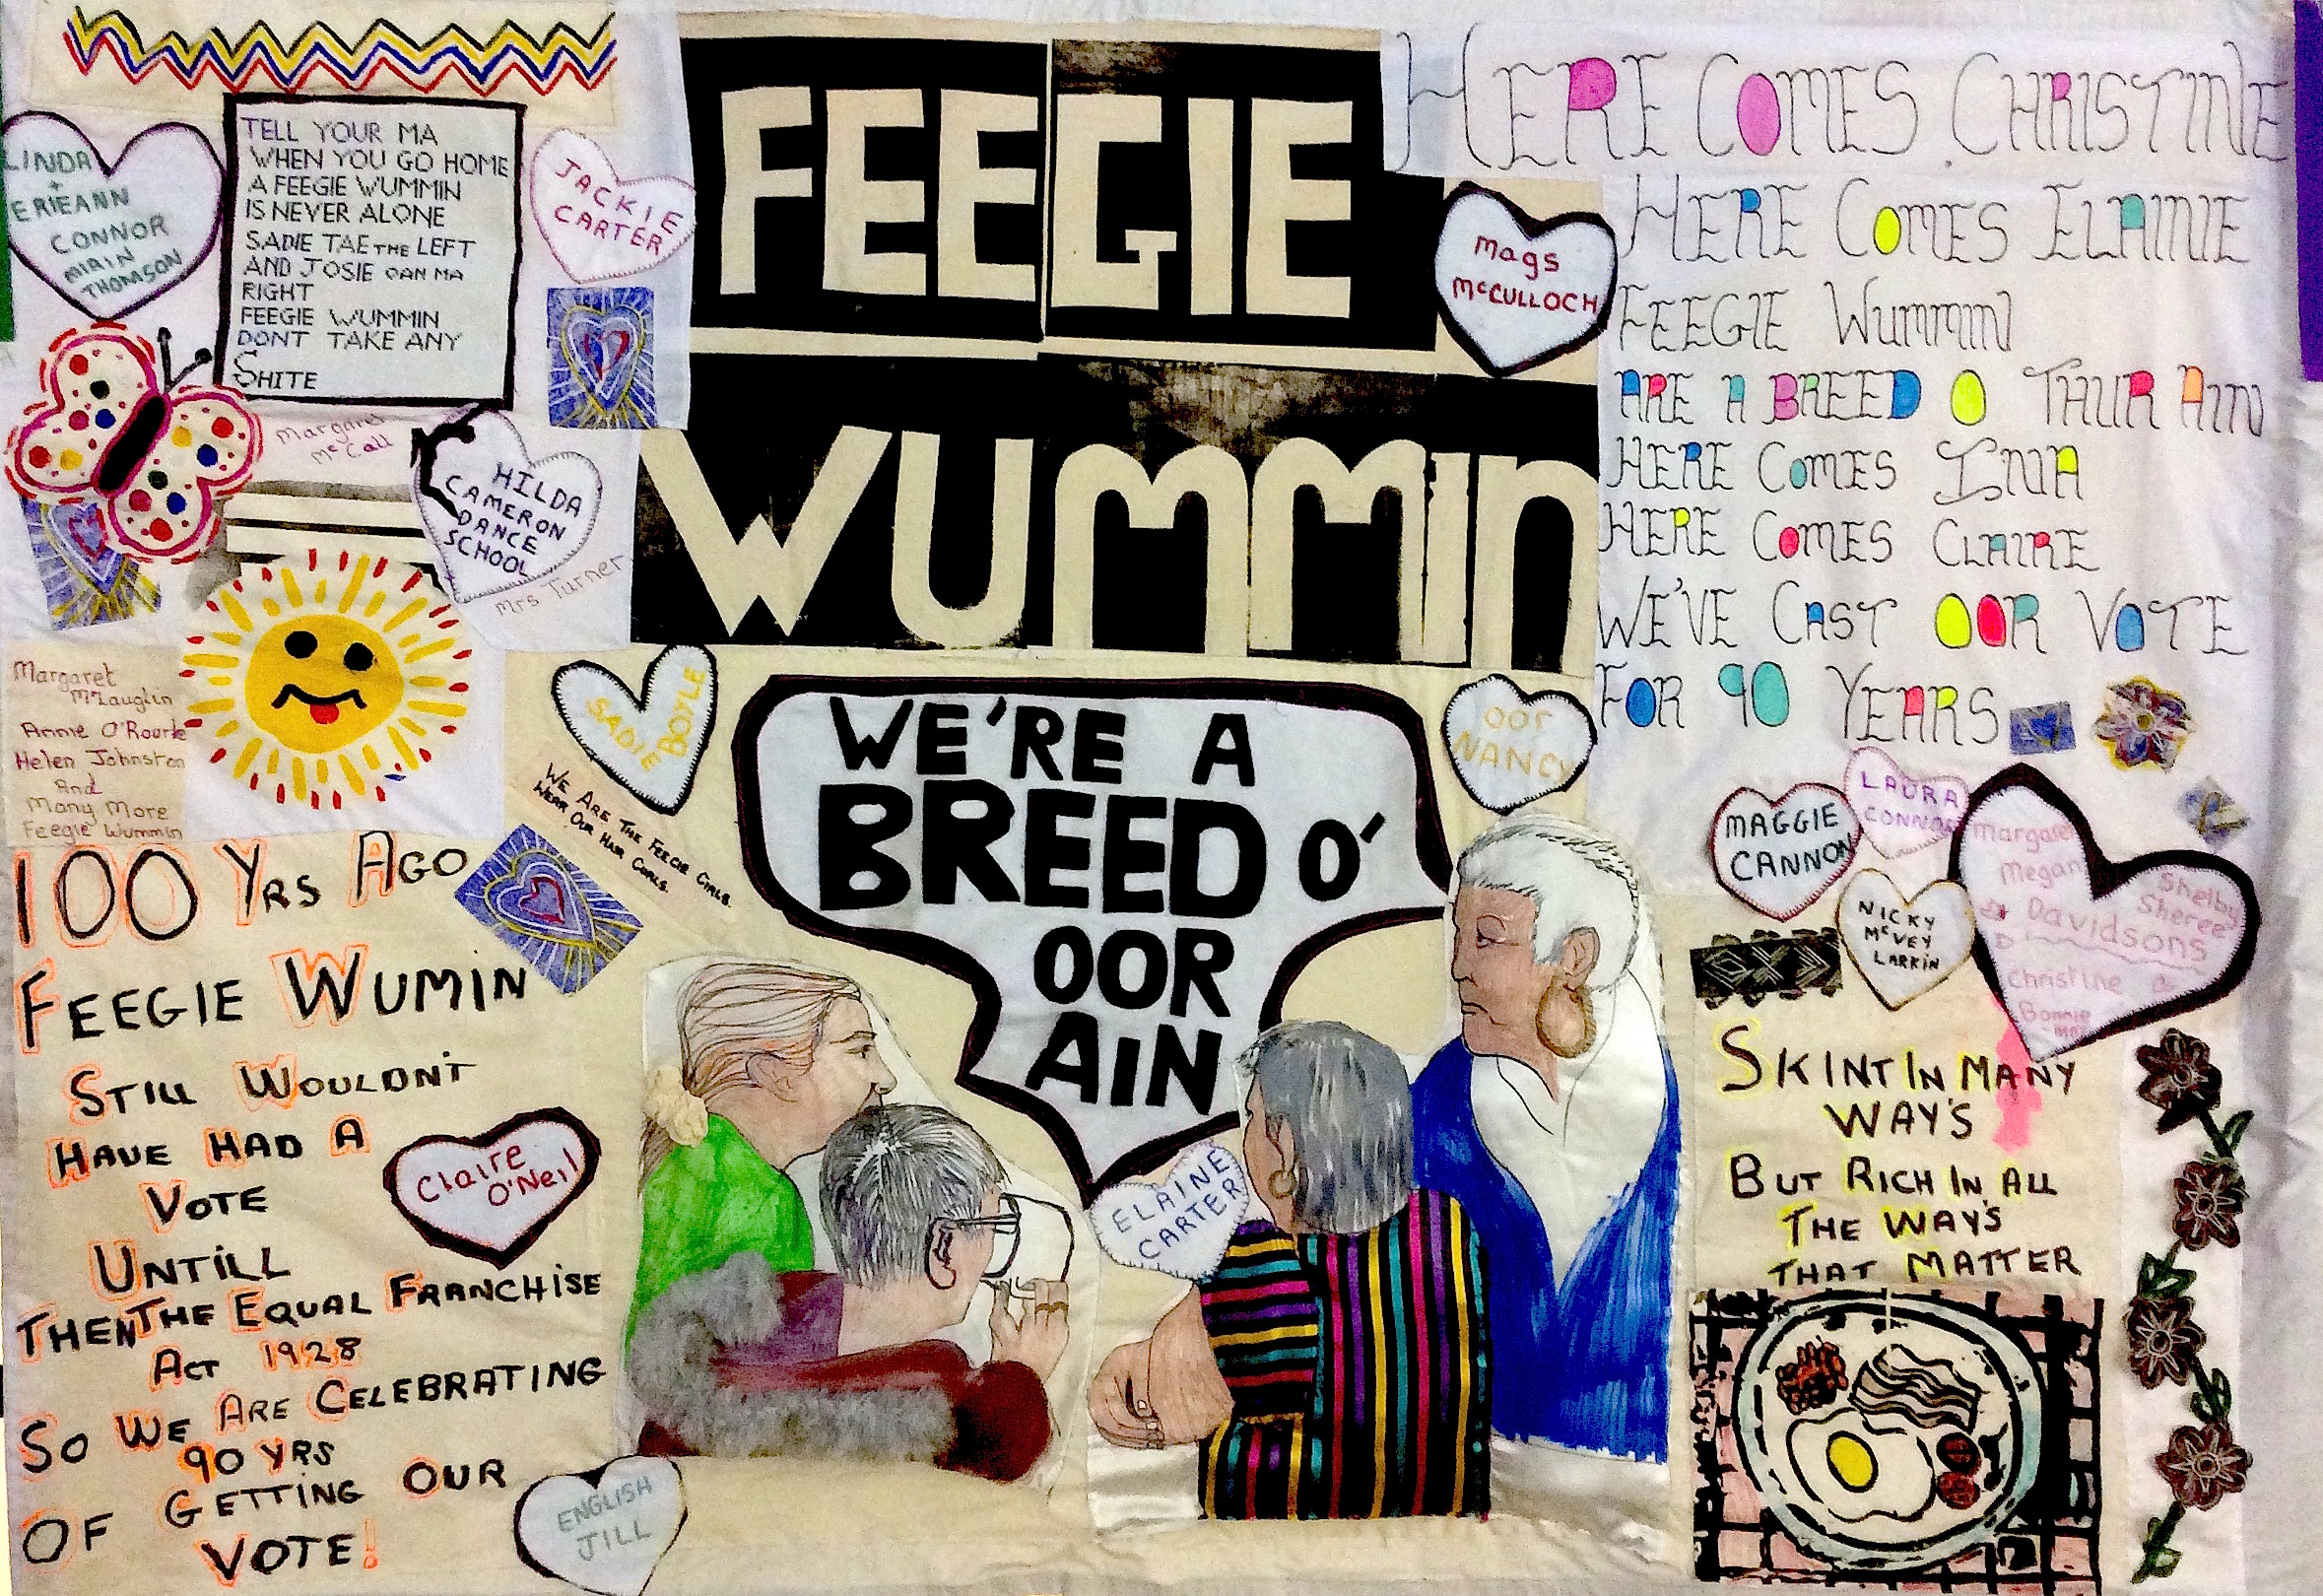 FEEGIE
WUMMIN
LINDA
+
ERIEANN
CONNOR
THOMSON
TELL YOUR MA
WHEN YOU GO HOME
A FEEGIE WUMMIN
IS NEVER ALONE
SADIE TAE THE LEFT
AND JOSIE OAN MA
RIGHT
FEEGIE WUMMIN
DONT TAKE ANY
SHITE
JACKIE
CARTER
Margaret
McCall
HILDA
CAMERON
DANCE
SCHOOL
Mrs Turner
Margaret
McLauglin
Annie O'Rourke
Helen Johnston
And
Many More
Feegie Wummin
SADIE
BOYLE
WE ARE THE FEEGIE GIRLS.
WEAR OUR HAIR CURLS.
100 YRS AGO
FEEGIE WUMIN
STILL WOULDNT
HAVE HAD A
VOTE
UNTILL
THEN THE EQUAL FRANCHISE
ACT 1928
SO WE ARE CELEBRATING
90 YRS
OF GETTING OUR
VOTE!
Claire
O'Neil
ENGLISH
JILL
WE'RE A
BREED O'
OOR
AIN
ELAINE
CARTER
Mags
McCULLOCH
OOr
NANCY
HERE COMES CHRISTINE
HERE COMES ELAINIE
FEEGIE WUMMIN
ARE A BREED O THUR AIN
HERE COMES INA
HERE COMES CLAIRE
WE'VE CAST OOR VOTE
FOR 90 YEARS
MAGGIE
CANNON
LAURA
CONNOR
NICKY
McVEY
LARKIN
Margaret
Megan
Shelby
Sheree
Davidsons
Christine
Bonnie
SKINT IN MANY
WAY'S
BUT RICH IN ALL
THE WAY'S
THAT MATTER